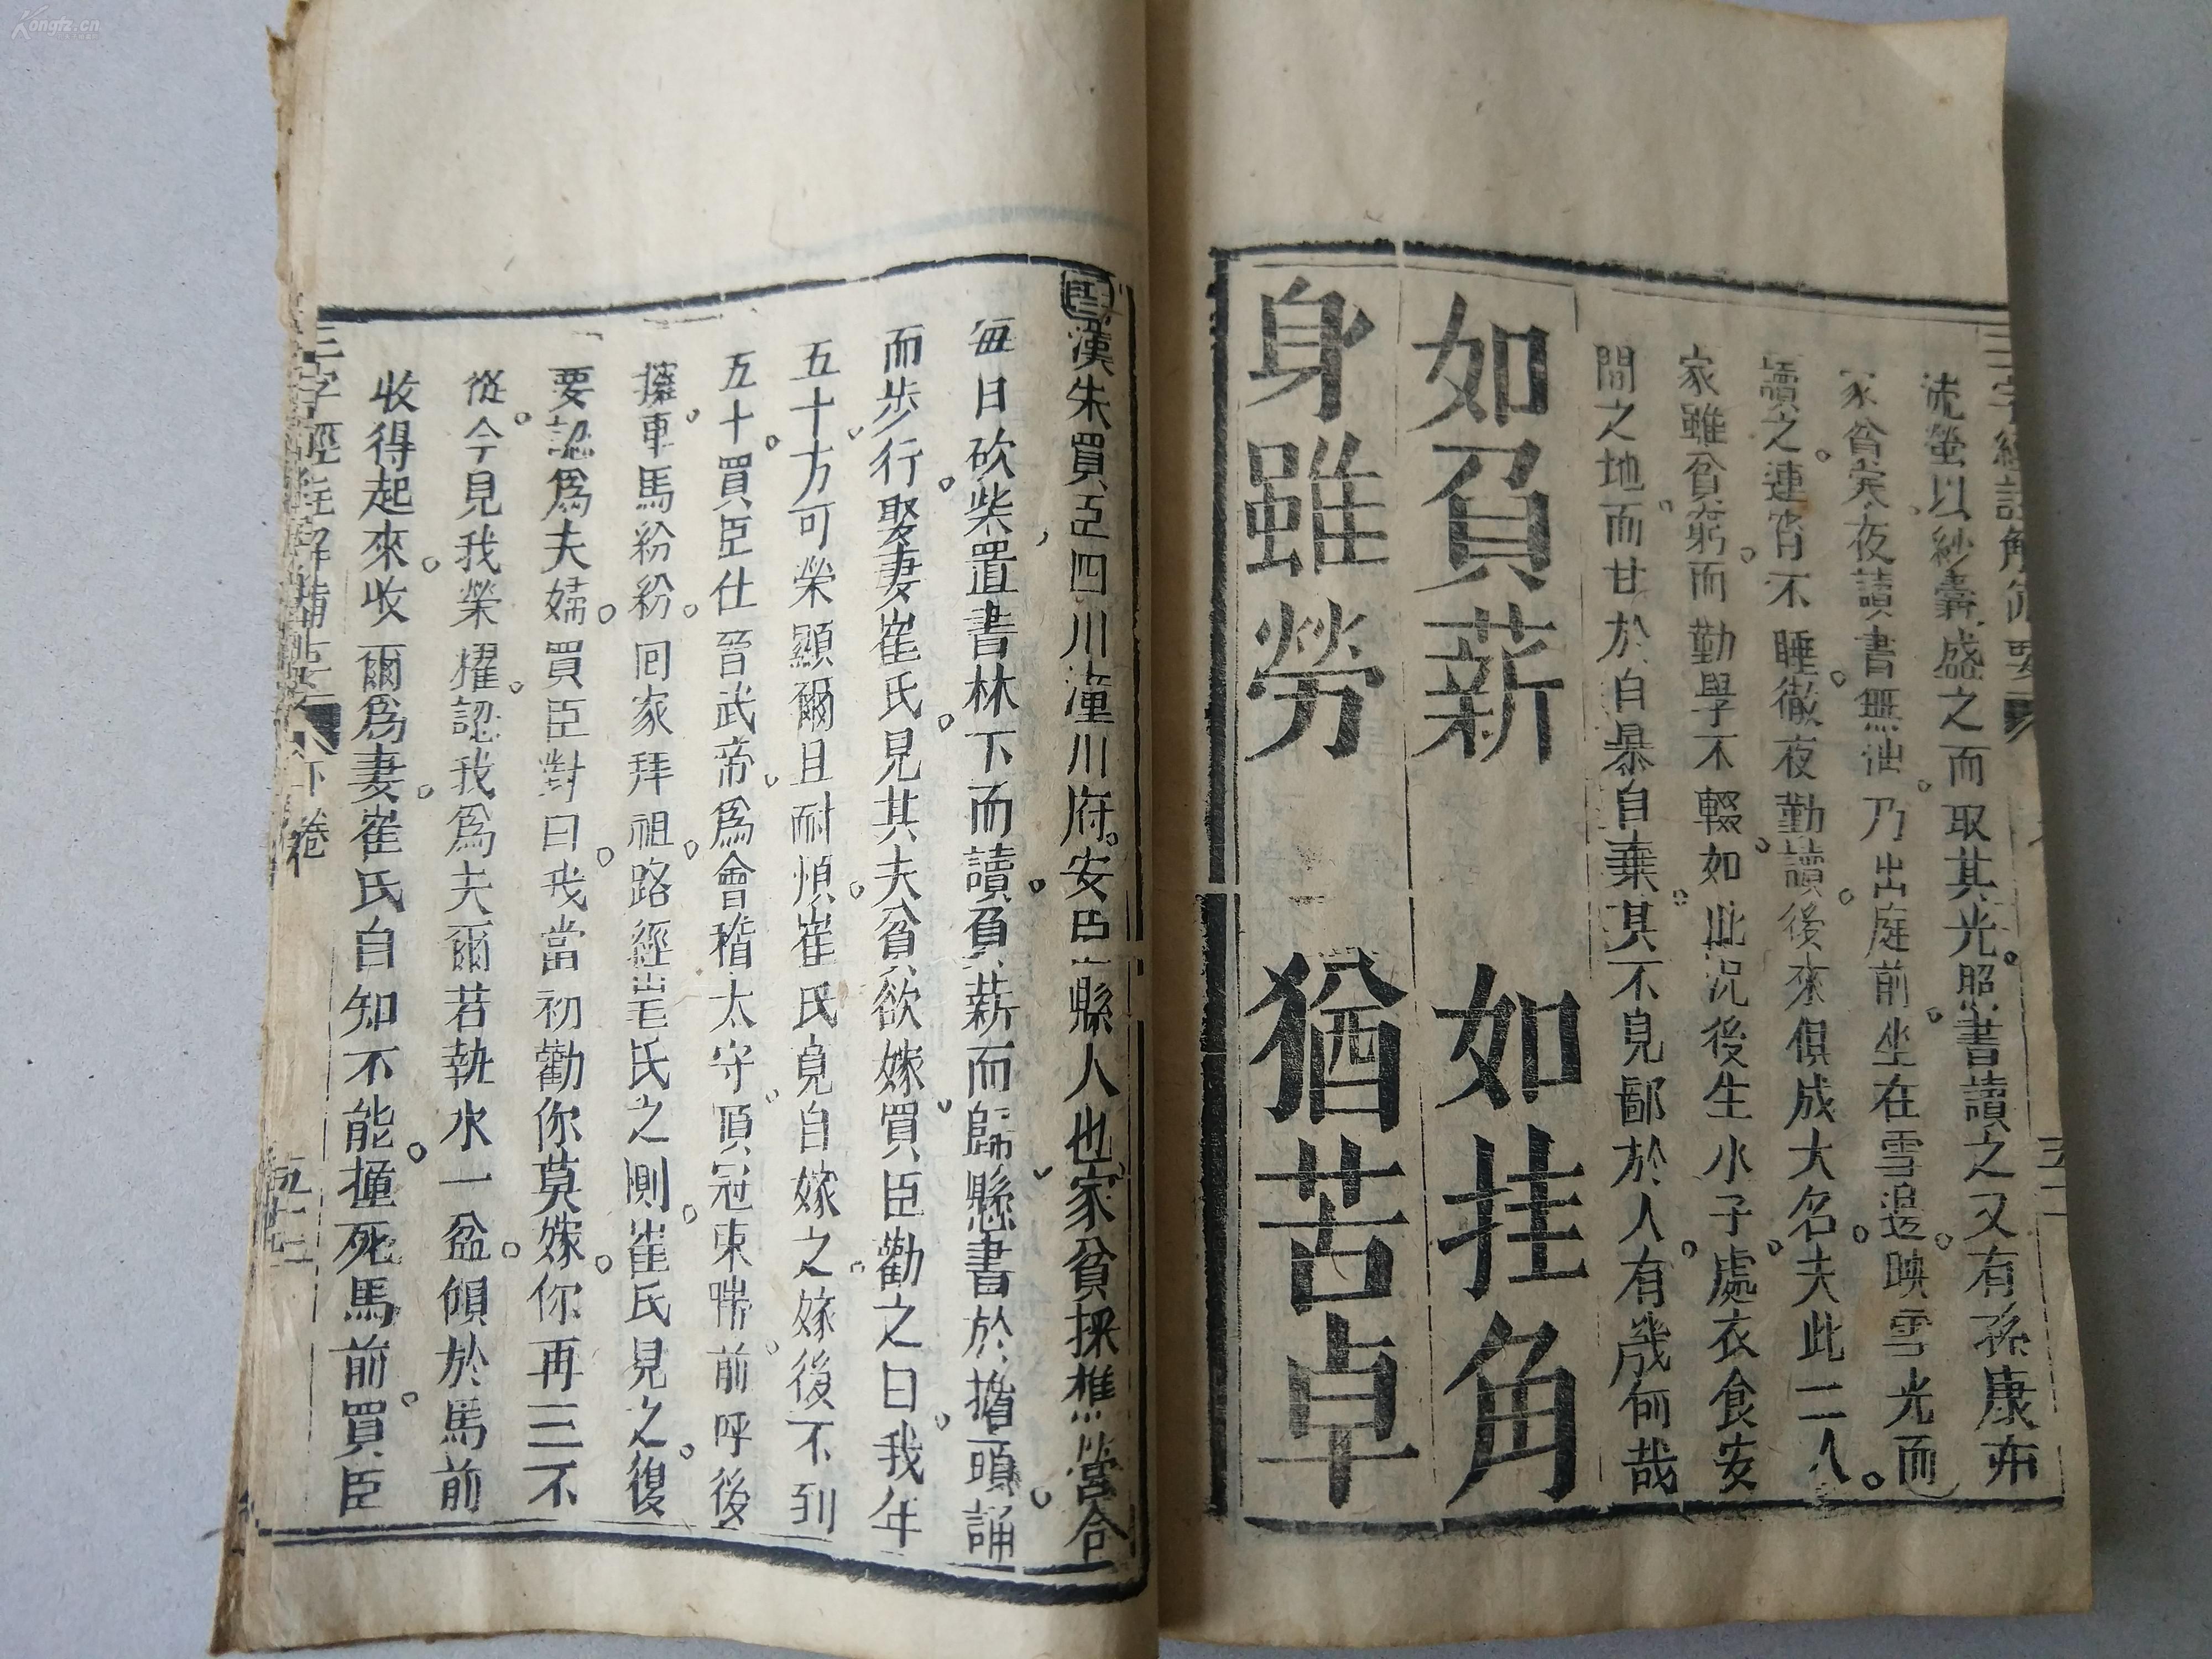 三字經註解備要
流螢以紗囊盛之而取其光照書讀之又有孫康亦
家貧矣夜讀書無油乃出庭前坐在雪邊映雪光而
讀之連宵不睡徹夜勤讀後來俱成大名夫此二人
家雖貧窮而勤學不輟如此況後生小子處衣食安
閒之地而甘於自暴自棄其不見鄙於人有幾何哉
如負薪 如挂角
身雖勞 猶苦卓
漢朱買臣四川潼川府安岳縣人也家貧採樵營食
每日砍柴置書林下而讀負薪而歸懸書於擔頭誦
而步行娶妻崔氏見其夫貧欲嫁買臣勸之曰我年
五十方可榮顯爾且耐煩崔氏竟自嫁之嫁後不到
五十買臣仕晉武帝爲會稽太守頂冠束帶前呼後
擁車馬紛紛回家拜祖路經崔氏之側崔氏見之復
要認爲夫婦買臣對曰我當初勸你莫嫁你再三不
從今見我榮耀認我爲夫爾若執水一盆傾於馬前
收得起來收爾爲妻崔氏自知不能撞死馬前買臣
三字經註解備要 下卷 五十二
Kongfz.cn